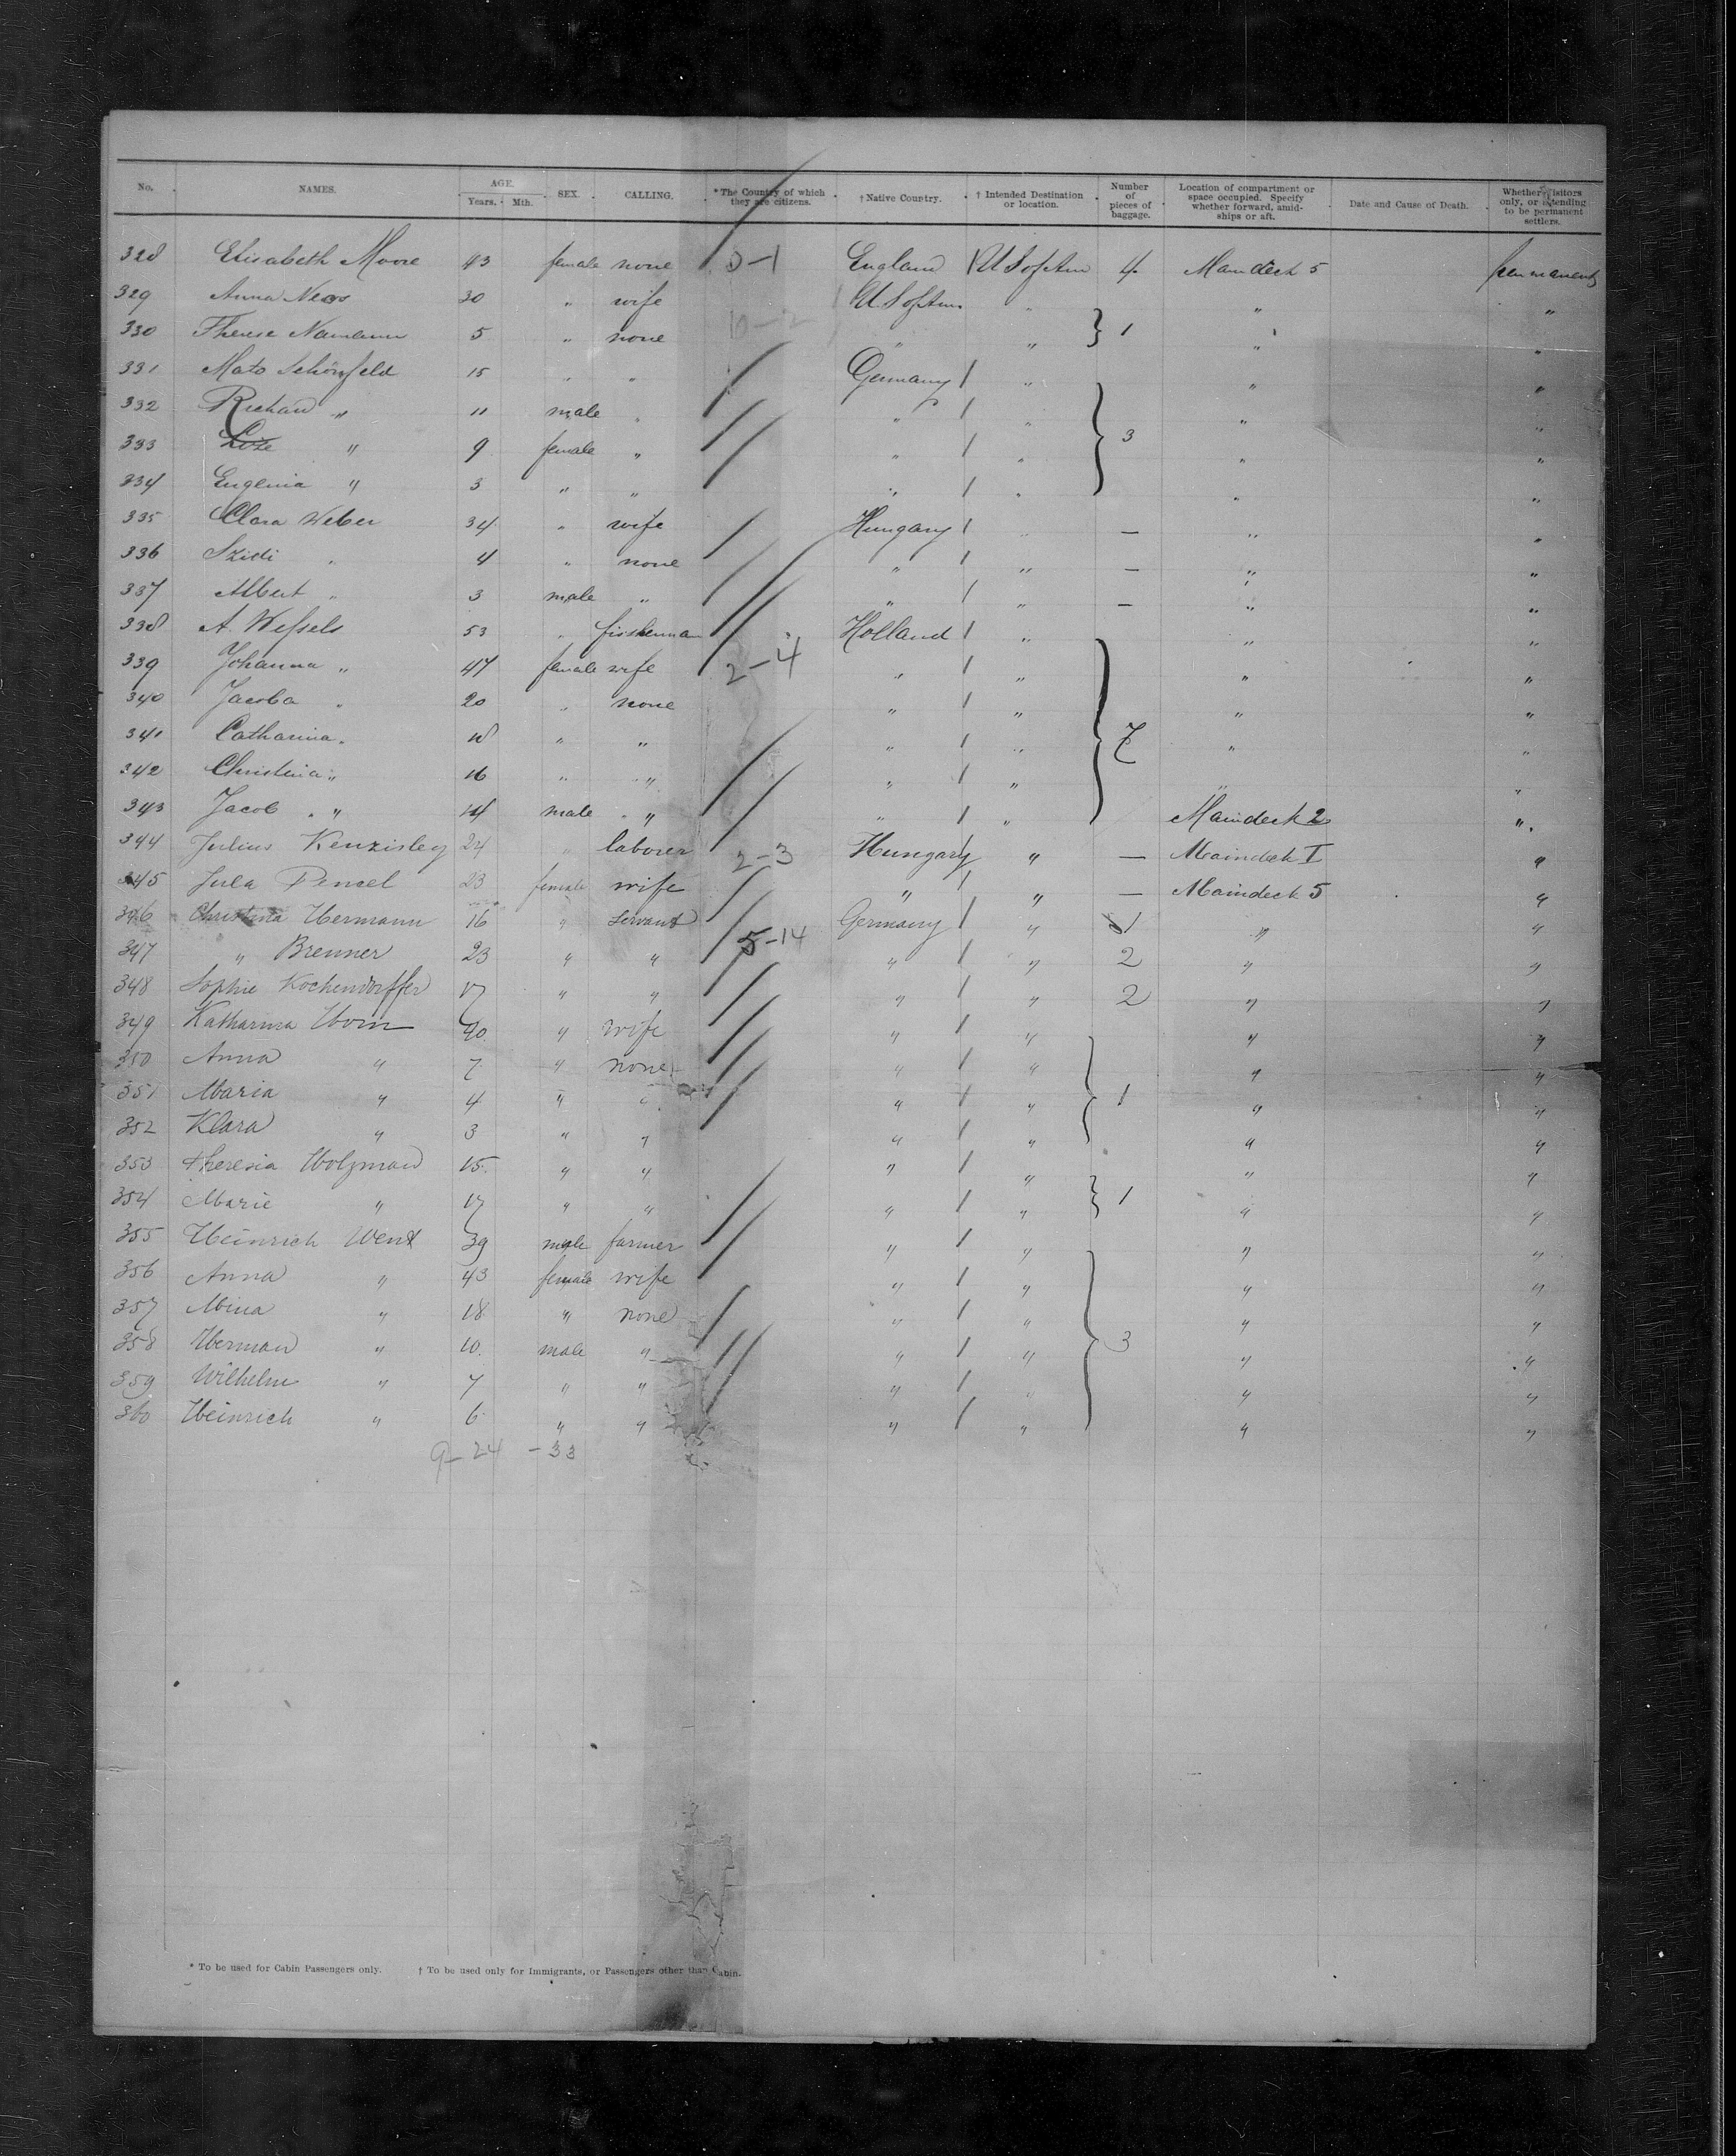 No. NAMES. AGE. Years. Mth. SEX. CALLING. *The Country of which they are citizens. †Native Country. † Intended Destination or location. Number of pieces of baggage. Location of compartment or space occupied. Specify whether forward, amidships or aft. Date and Cause of Death. Whether visitors only, or intending to be permanent settlers.
328 Elisabeth Moore 43 female none 0-1 England U S of Am 4 Maindeck 5 permanent
329 Anna 30 " wife U. S of Am. " " "
330 Therese Namann 5 " none " " 1 " "
331 Schönfeld 15 " " Germany " " "
332 Richard " 11 male " " " " "
333 " 9 female " " " 3 " "
334 Eugenia " 3 " " " " " "
335 Clara Weber 34 " wife Hungary " — " "
336 Szidi " 4 " none " " — " "
337 Albert " 3 male " " " — " "
338 A. Wessels 53 " fissherman Holland " " "
339 Johanna " 47 female wife 2-4 " " " "
340 Jacoba " 20 " none " " " "
341 Catharina " 18 " " " " 7 " "
342 Christina " 16 " " " " " "
343 Jacob " 14 male " " " Maindeck 2 "
344 Julius Kenzisley 24 " laborer 2-3 Hungary " — Maindeck I "
345 Jula Pencel 23 female wife " " — Maindeck 5 "
346 Christina Hermann 16 " servant Germany " 1 " "
347 " Brenner 23 " " 5-14 " " 2 " "
348 Sophie Kochendörffer 17 " " " " 2 " "
349 Katharina Horn 40 " wife " " " "
350 Anna " 7 " none " " " "
351 Maria " 4 " " " " 1 " "
352 Klara " 3 " " " " " "
353 Theresia Holzman 15 " " " " " "
354 Marie " 17 " " " " 1 " "
355 Heinrich Went 39 male farmer " " " "
356 Anna " 43 female wife " " " "
357 Mina " 18 " none " " " "
358 Herman " 10 male " " " 3 " "
359 Wilhelm " 7 " " " " " "
360 Heinrich " 6 " " " " " "
9-24 -33
* To be used for Cabin Passengers only. † To be used only for Immigrants, or Passengers other than Cabin.